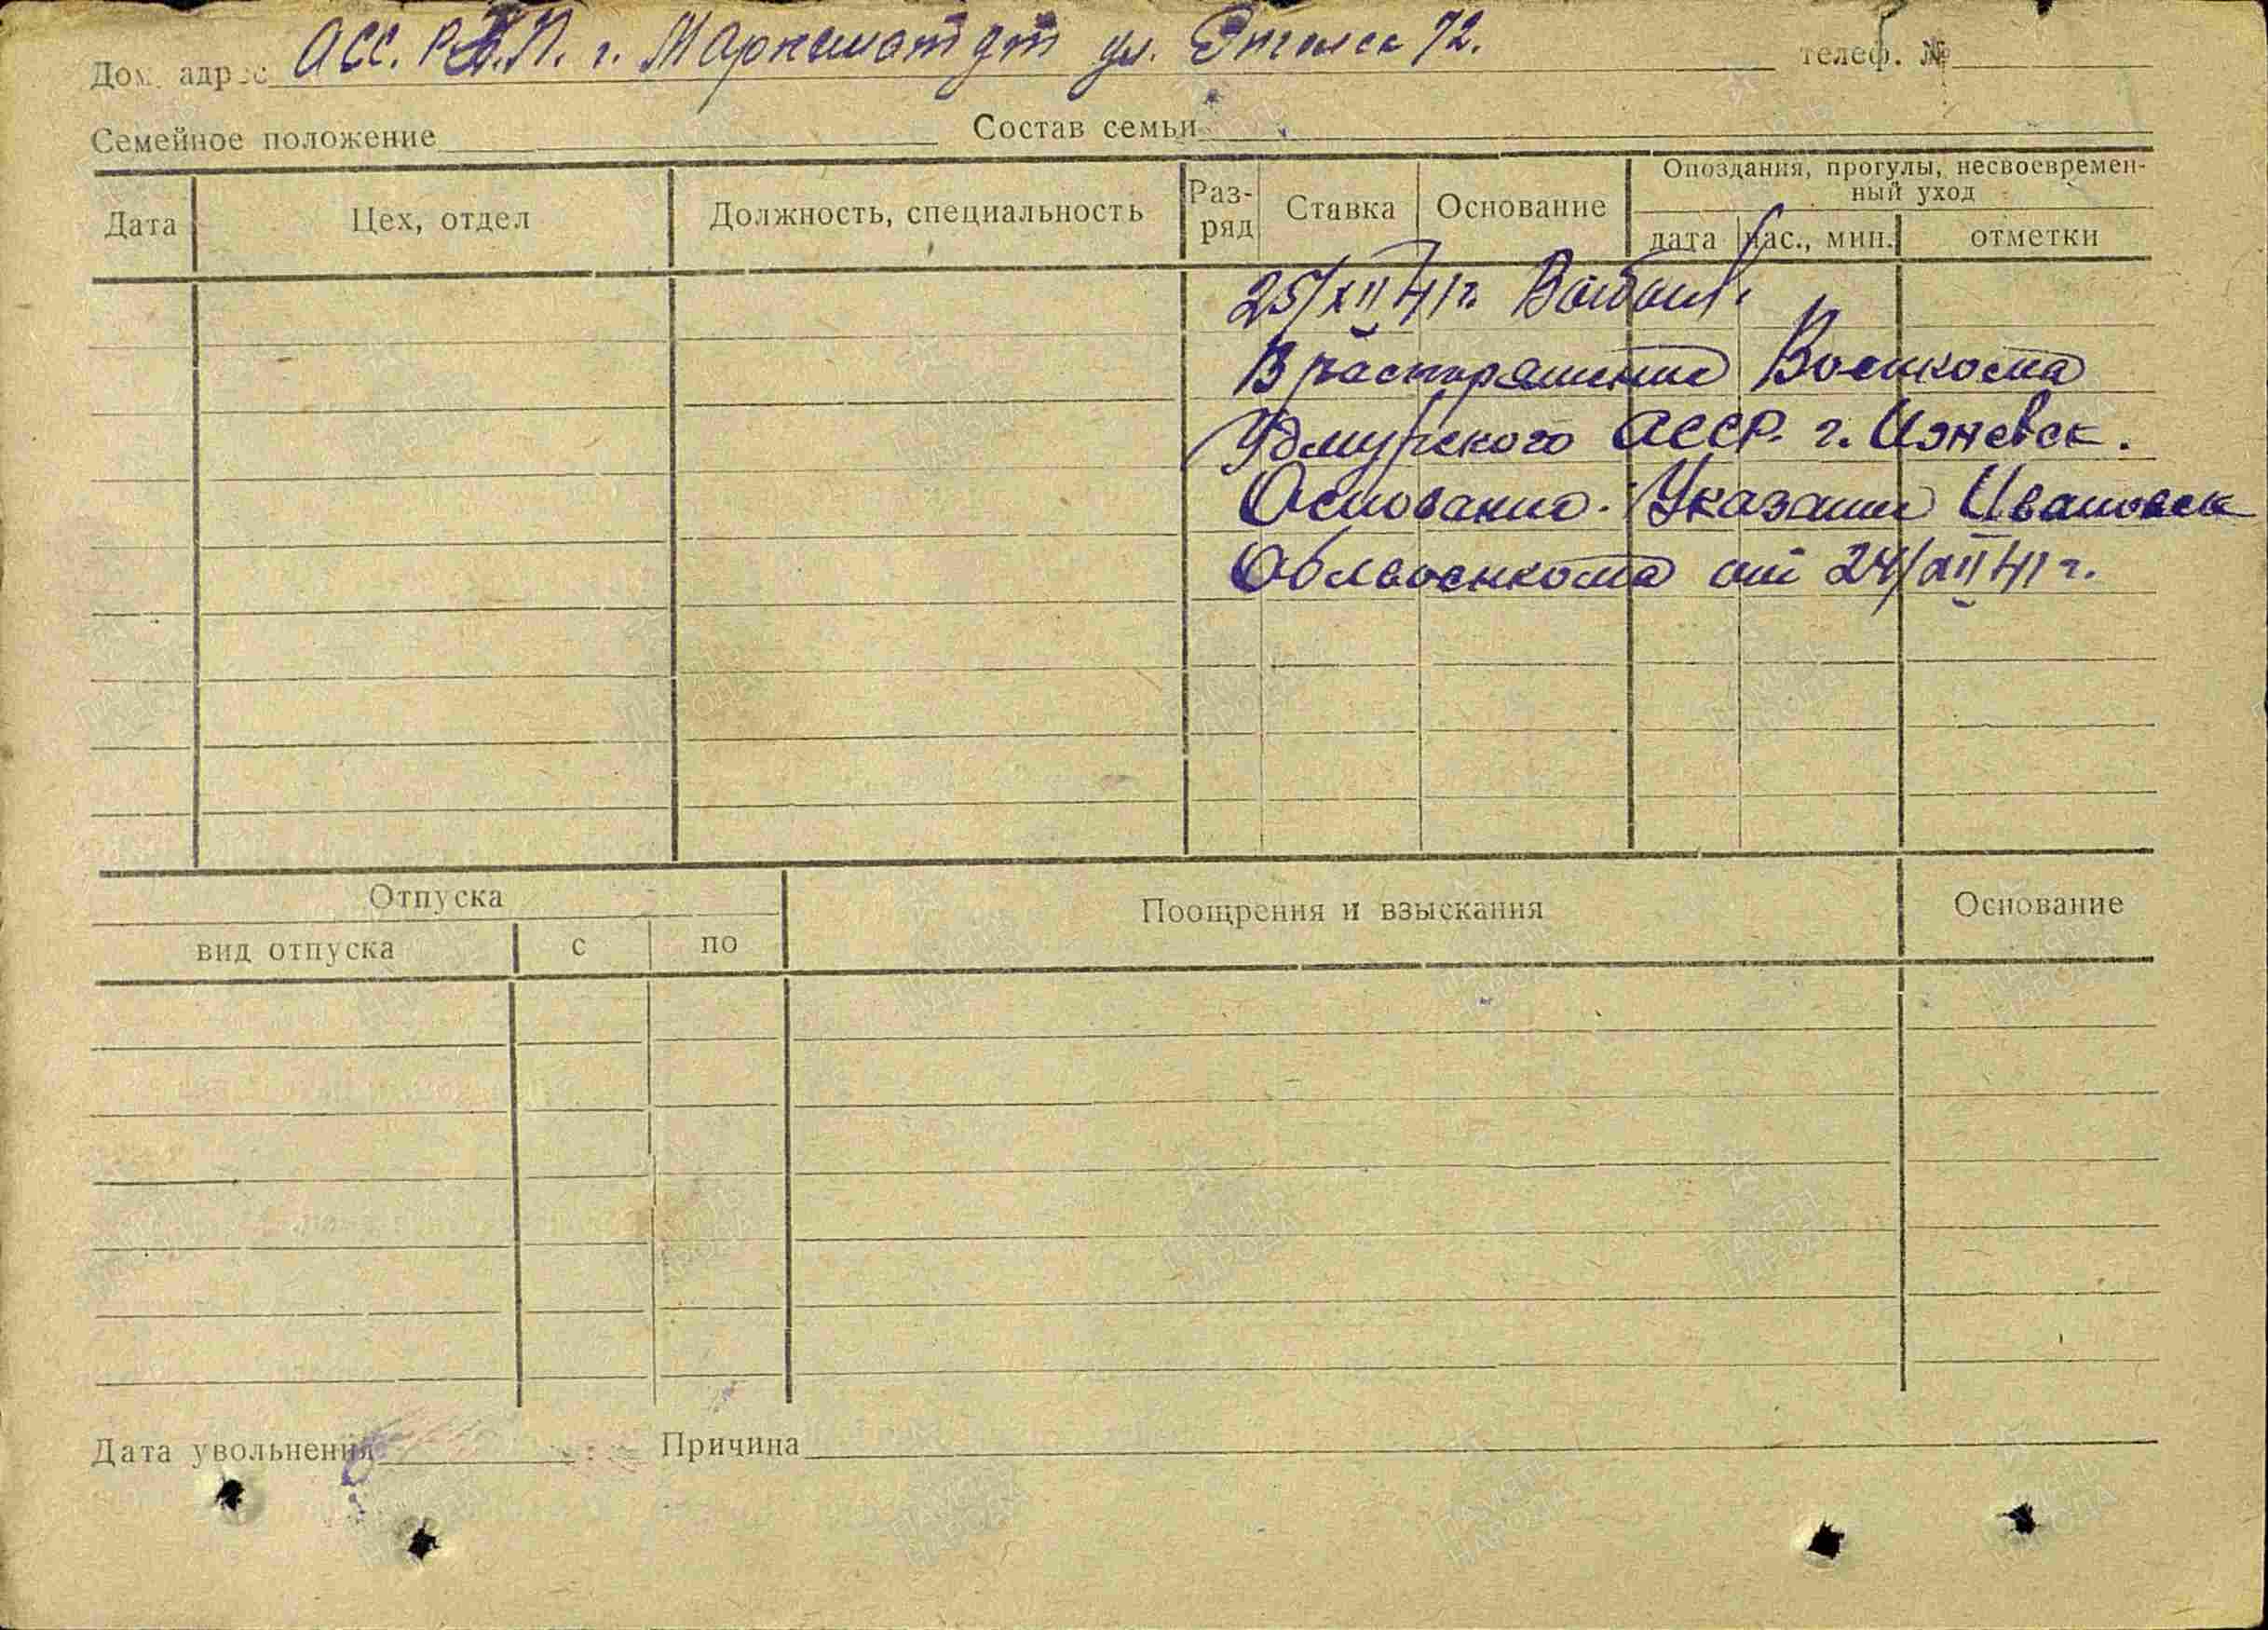 Дом. адрес АСС. Р.Н.П. г. Марксштадт ул. Энгельса 72. телеф. №
Семейное положение Состав семьи
Дата Цех, отдел Должность, специальность Раз-ряд Ставка Основание Опоздания, прогулы, несвоевремен-
ный уход
дата час., мин. отметки
25/XII 41 г. Выбыл.
В распоряжение Военкома
Удмурского АССР. г. Ижевск.
Основание: Указание Ивановск
Облвоенкома от 24/XII 41 г.
Отпуска Поощрения и взыскания Основание
вид отпуска с по
Дата увольнения Причина